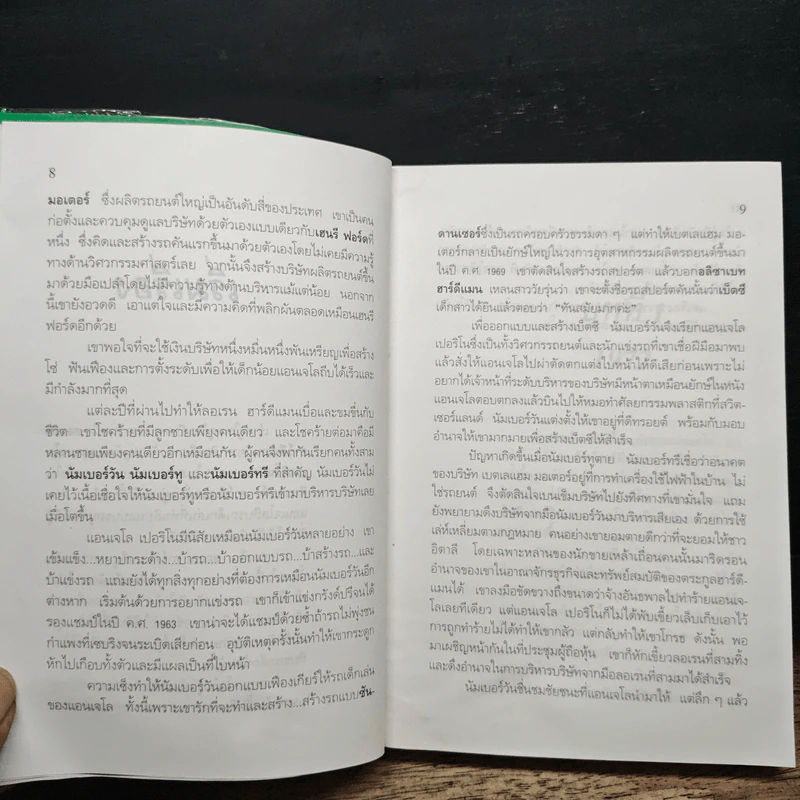 8
มอเตอร์ ซึ่งผลิตรถยนต์ใหญ่เป็นอันดับสี่ของประเทศ เขาเป็นคน
ก่อตั้งและควบคุมดูแลบริษัทด้วยตัวเองแบบเดียวกับเฮนรี ฟอร์ดที่
หนึ่ง ซึ่งคิดและสร้างรถคันแรกขึ้นมาด้วยตัวเองโดยไม่เคยมีความรู้
ทางด้านวิศวกรรมศาสตร์เลย จากนั้นจึงสร้างบริษัทผลิตรถยนต์ขึ้น
มาด้วยมือเปล่าโดยไม่มีความรู้ทางด้านบริหารแม้แต่น้อย นอกจาก
นี้เขายังอวดดี เอาแต่ใจและมีความคิดที่พลิกผันตลอดเหมือนเฮนรี
ฟอร์ดอีกด้วย
เขาพอใจที่จะใช้เงินบริษัทหนึ่งหมื่นหนึ่งพันเหรียญเพื่อสร้าง
โซ่ ฟันเฟืองและการตั้งระดับเพื่อให้เด็กน้อยแอนเจโลถีบได้เร็วและ
มีกำลังมากที่สุด
แต่ละปีที่ผ่านไปทำให้ลอเรน ฮาร์ดีแมนเบื่อและขมขื่นกับ
ชีวิต เขาโชคร้ายที่มีลูกชายเพียงคนเดียว และโชคร้ายต่อมาคือมี
หลานชายเพียงคนเดียวอีกเหมือนกัน ผู้คนจึงพากันเรียกคนทั้งสาม
ว่า นัมเบอร์วัน นัมเบอร์ทู และนัมเบอร์ทรี ที่สำคัญ นัมเบอร์วันไม่
เคยไว้เนื้อเชื่อใจให้นัมเบอร์ทูหรือนัมเบอร์ทรีเข้ามาบริหารบริษัทเลย
เมื่อโตขึ้น
แอนเจโล เปอริโนมีนิสัยเหมือนนัมเบอร์วันหลายอย่าง เขา
เข้มแข็ง...หยาบกระด้าง...บ้ารถ...บ้าออกแบบรถ...บ้าสร้างรถ...และ
บ้าแข่งรถ แถมยังได้ทุกสิ่งทุกอย่างที่ต้องการเหมือนนัมเบอร์วันอีก
ต่างหาก เริ่มต้นด้วยการอยากแข่งรถ เขาก็เข้าแข่งกรังด์ปรีจนได้
รองแชมป์ในปี ค.ศ. 1963 เขาน่าจะได้แชมป์ด้วยซ้ำถ้ารถไม่พุ่งชน
กำแพงที่เซบริงจนระเบิดเสียก่อน อุบัติเหตุครั้งนั้นทำให้เขากระดูก
หักไปเกือบทั้งตัวและมีแผลเป็นที่ใบหน้า
ความเซ็งทำให้นัมเบอร์วันออกแบบเฟืองเกียร์ให้รถเด็กเล่น
ของแอนเจโล ทั้งนี้เพราะเขารักที่จะทำและสร้าง...สร้างรถแบบซัน-
9
ดานเซอร์ซึ่งเป็นรถครอบครัวธรรมดา ๆ แต่ทำให้เบตเลแฮม มอ-
เตอร์กลายเป็นยักษ์ใหญ่ในวงการอุตสาหกรรมผลิตรถยนต์ขึ้นมา
ในปี ค.ศ. 1969 เขาตัดสินใจสร้างรถสปอร์ต แล้วบอกอลิซาเบท
ฮาร์ดีแมน เหลนสาววัยรุ่นว่า เขาจะตั้งชื่อรถสปอร์ตคันนั้นว่าเบ็ตซี
เด็กสาวได้ยินแล้วตอบว่า “ทันสมัยมากค่ะ”
เพื่อออกแบบและสร้างเบ็ตซี นัมเบอร์วันจึงเรียกแอนเจโล
เปอริโนซึ่งเป็นทั้งวิศวกรรถยนต์และนักแข่งรถที่เขาเชื่อฝีมือมาพบ
แล้วสั่งให้แอนเจโลไปผ่าตัดตกแต่งใบหน้าให้ดีเสียก่อนเพราะไม่
อยากได้เจ้าหน้าที่ระดับบริหารของบริษัทมีหน้าตาเหมือนยักษ์ในหนัง
แอนเจโลตอบตกลงแล้วบินไปให้หมอทำศัลยกรรมพลาสติกที่สวิต-
เซอร์แลนด์ นัมเบอร์วันแต่งตั้งให้เขาอยู่ที่ดีทรอยต์ พร้อมกับมอบ
อำนาจให้เขามากมายเพื่อสร้างเบ็ตซีให้สำเร็จ
ปัญหาเกิดขึ้นเมื่อนัมเบอร์ทูตาย นัมเบอร์ทรีเชื่อว่าอนาคต
ของบริษัท เบตเลแฮม มอเตอร์อยู่ที่การทำเครื่องใช้ไฟฟ้าในบ้าน ไม่
ใช่รถยนต์ จึงตัดสินใจเบนเข็มบริษัทไปยังทิศทางที่เขามั่นใจ แถม
ยังพยายามดึงบริษัทจากมือนัมเบอร์วันมาบริหารเสียเอง ด้วยการใช้
เล่ห์เหลี่ยมตามกฎหมาย คนอย่างเขายอมตายดีกว่าที่จะยอมให้ชาว
อิตาลี โดยเฉพาะหลานของนักขายเหล้าเถื่อนคนนั้นมาริดรอน
อำนาจของเขาในอาณาจักรธุรกิจและทรัพย์สมบัติของตระกูลฮาร์ดี-
แมนได้ เขาลงมือขัดขวางถึงขนาดว่าจ้างอันธพาลไปทำร้ายแอนเจ-
โลเลยทีเดียว แต่แอนเจโล เปอริโนก็ไม่ได้พับเขี้ยวเล็บเก็บเอาไว้
การถูกทำร้ายไม่ได้ทำให้เขากลัว แต่กลับทำให้เขาโกรธ ดังนั้น พอ
มาเผชิญหน้ากันในที่ประชุมผู้ถือหุ้น เขาก็หักเขี้ยวลอเรนที่สามทิ้ง
และดึงอำนาจในการบริหารบริษัทจากมือลอเรนที่สามมาได้สำเร็จ
นัมเบอร์วันชื่นชมชัยชนะที่แอนเจโลนำมาให้ แต่ลึก ๆ แล้ว